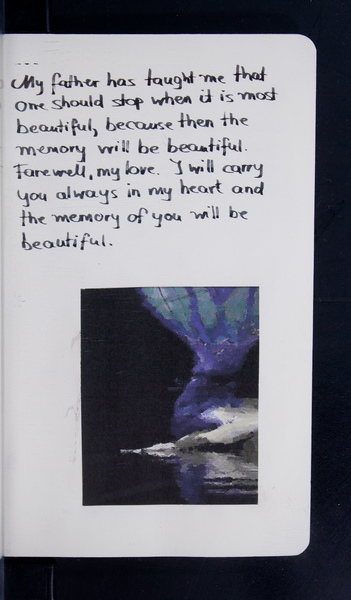 ---
My father has taught me that
one should stop when it is most
beautiful, because then the
memory will be beautiful.
Farewell, my love. I will carry
you always in my heart and
the memory of you will be
beautiful.